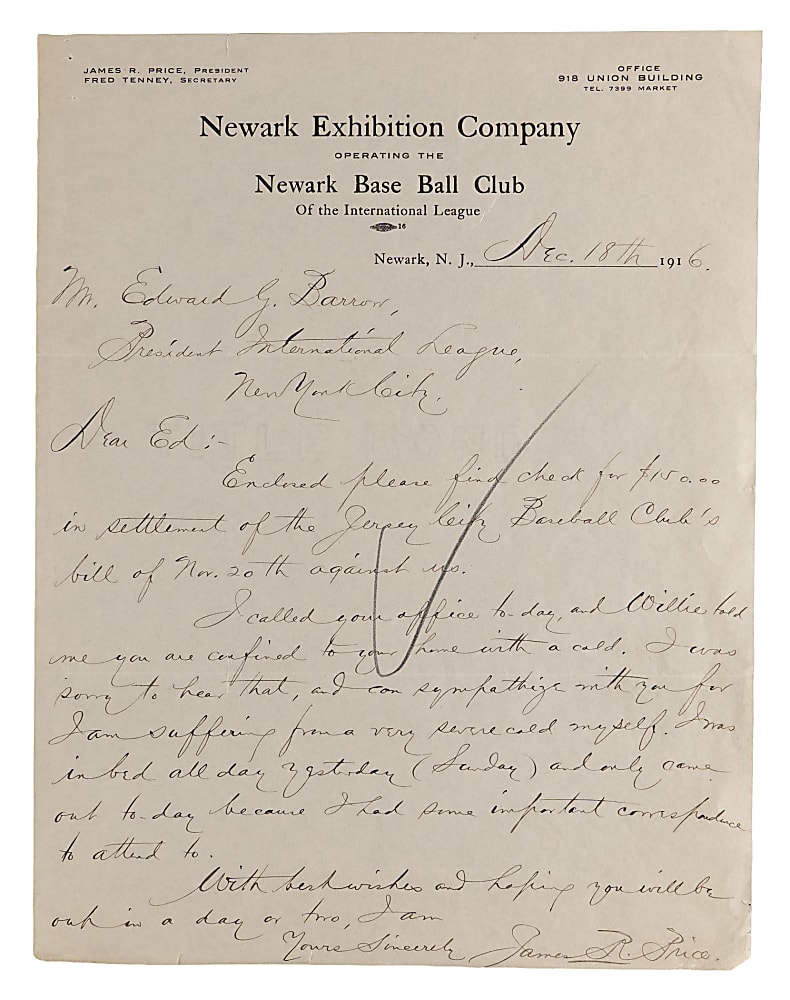 JAMES R. PRICE, PRESIDENT
FRED TENNEY, SECRETARY
OFFICE
918 UNION BUILDING
TEL. 7399 MARKET
Newark Exhibition Company
OPERATING THE
Newark Base Ball Club
Of the International League
16
Newark, N. J., Dec. 18th 1916.
Mr. Edward G. Barrow,
President International League,
New York City.
Dear Ed:-
Enclosed please find check for $150.00
in settlement of the Jersey City Baseball Club's
bill of Nov. 20th against us.
I called your office to-day, and Willie told
me you are confined to your home with a cold. I was
sorry to hear that, and can sympathize with you for
I am suffering from a very severe cold myself. I was
in bed all day yesterday (Sunday) and only came
out to-day because I had some important correspondence
to attend to.
With best wishes and hoping you will be
out in a day or two, I am
Yours Sincerely James R. Price.